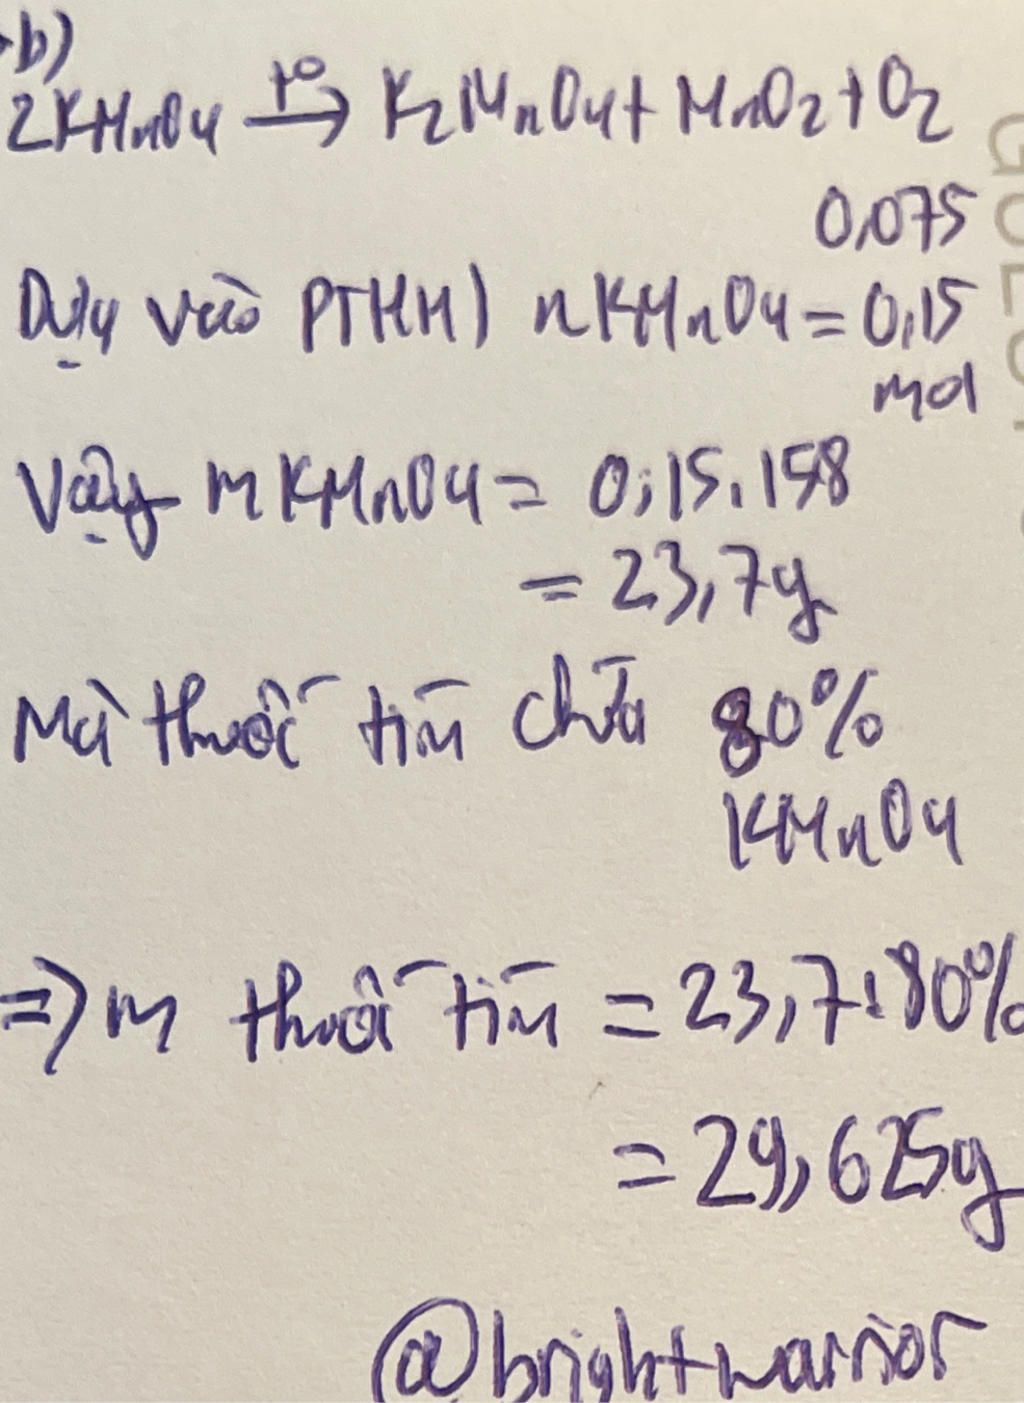 b)
2KMnO4 t° → K2MnO4 + MnO2 + O2
0,075
Dựa vào PTHH) nKMnO4 = 0,15
mol
Vậy mKMnO4 = 0,15.158
= 23,7g
Mà thuốc tím chứa 80%
KMnO4
=> m thuốc tím = 23,7:80%
= 29,625g
@brightwarrior